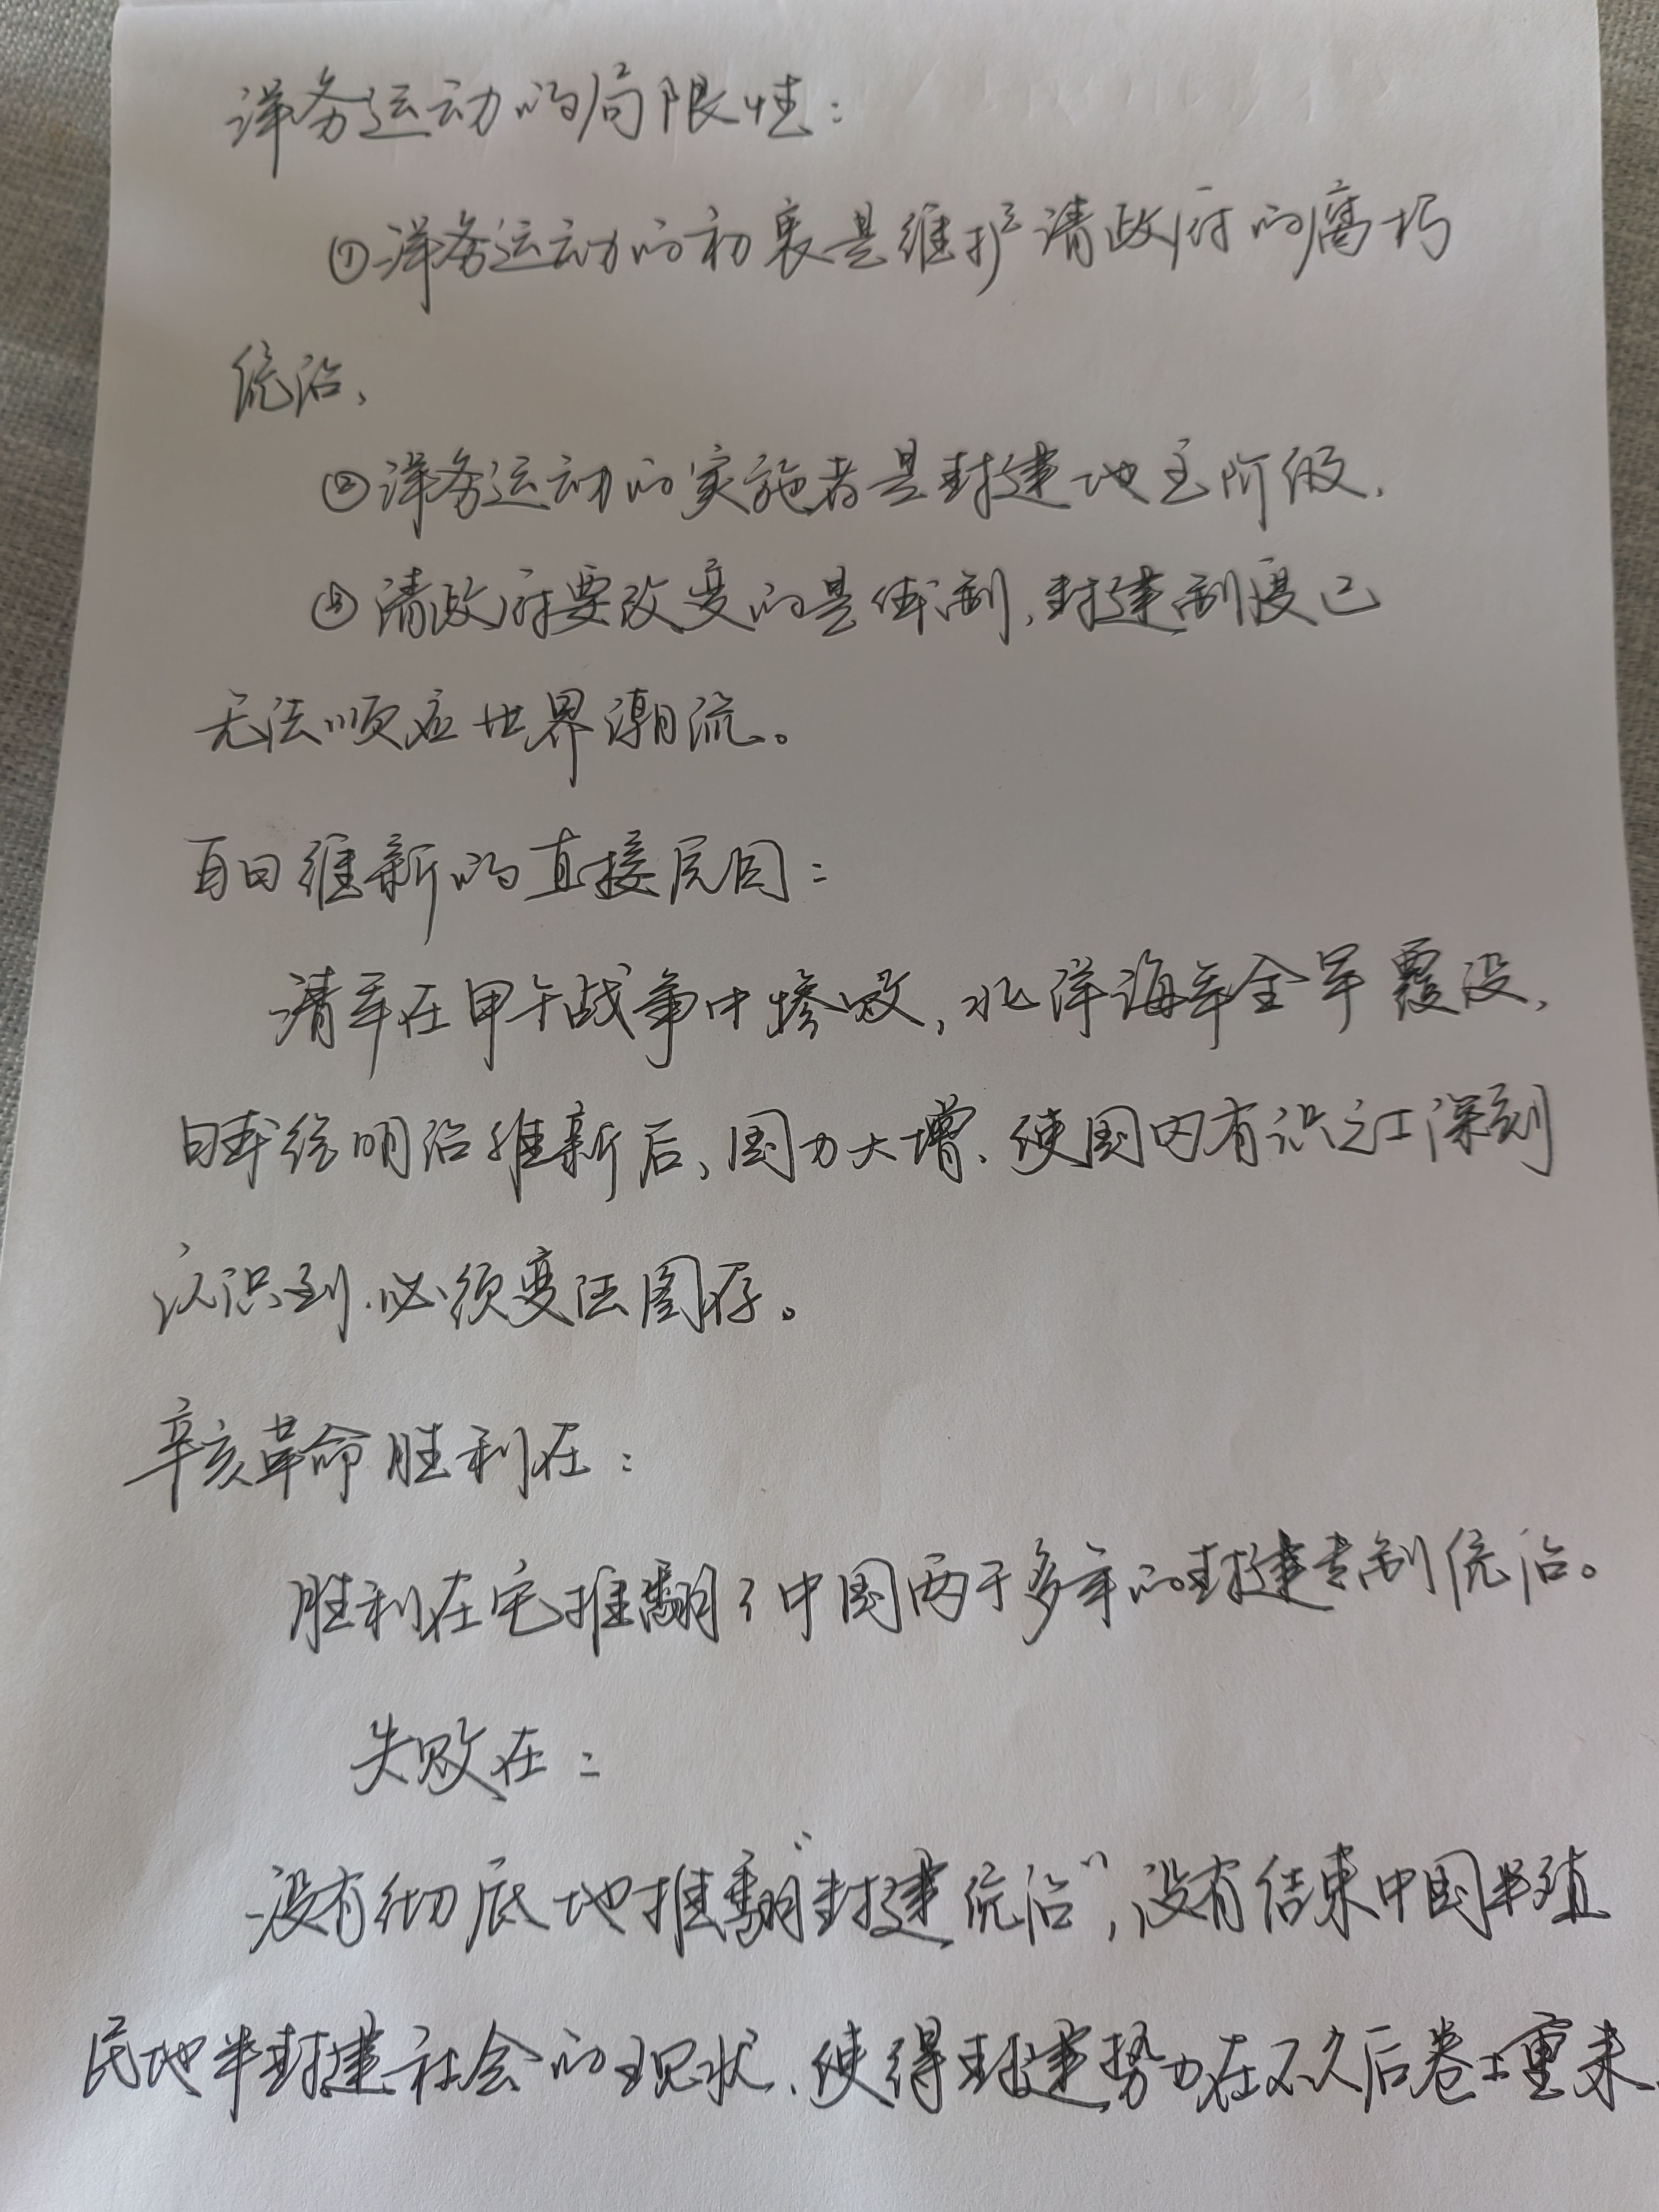 洋务运动的局限性：
①洋务运动的初衷是维护清政府的腐朽
统治、
②洋务运动的实施者是封建地主阶级.
③清政府要改变的是体制,封建制度已
无法顺应世界潮流。
百日维新的直接原因：
清军在甲午战争中惨败,北洋海军全军覆没,
日本经明治维新后、国力大增、使国内有识之士深刻
认识到.必须变法图存。
辛亥革命胜利在：
胜利在它推翻了中国两千多年的封建专制统治。
失败在：
没有彻底地推翻"封建统治",没有结束中国半殖
民地半封建社会的现状、使得封建势力在不久后卷土重来.